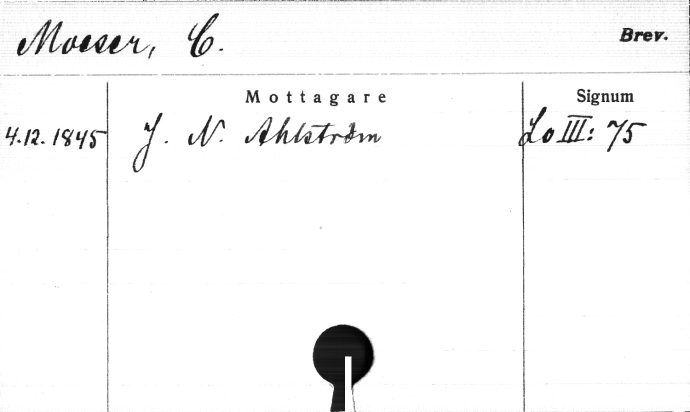 Moeser, C.
Brev.
Mottagare
Signum
4.12.1845
J. N. Ahlström
Lo III: 75